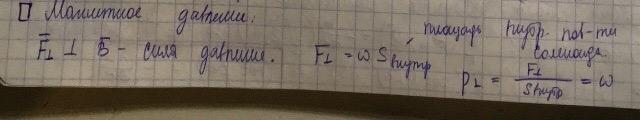 Магнитное давление.
F̄⊥ ⊥ B̄ - сила давления. F⊥ = ω Sвнутр
площадь внутр. пов-ти соленоида
p⊥ = F⊥ / Sвнутр = ω